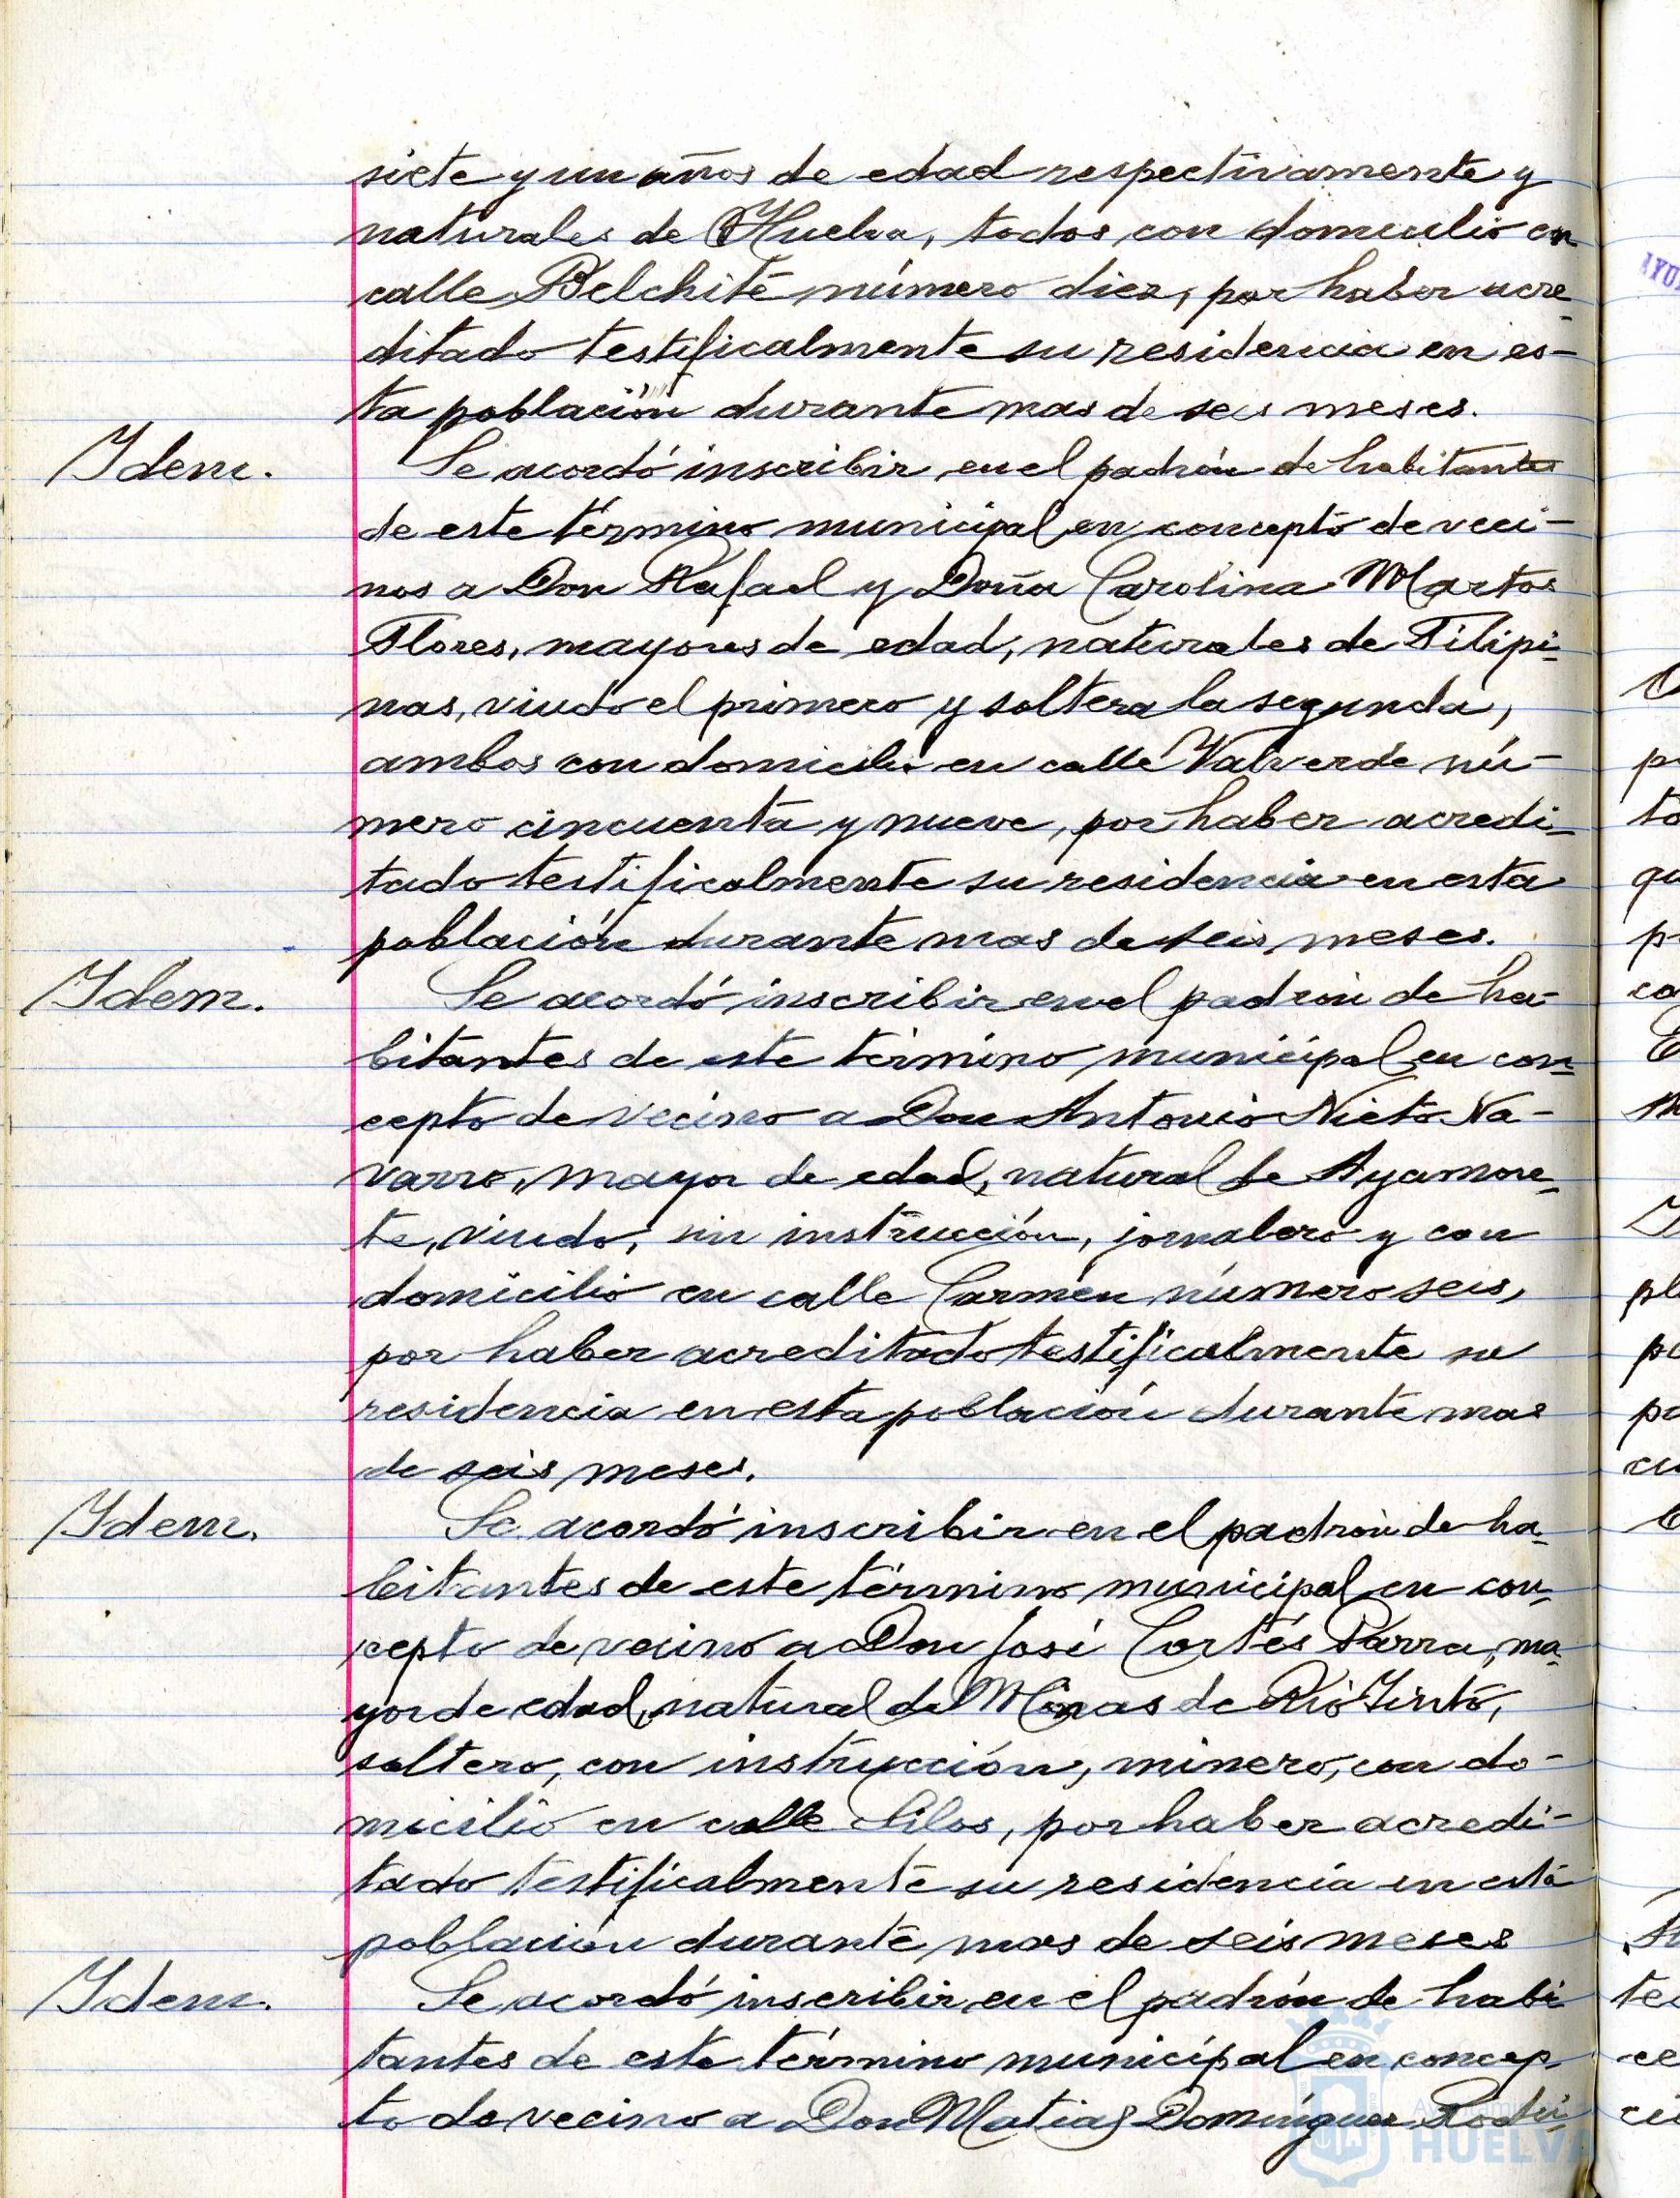 siete y un años de edad respectivamente y
naturales de Huelva, todos con domicilio en
calle Belchite número diez, por haber acre-
ditado testificalmente su residencia en es-
ta población durante mas de seis meses.
Idem. Se acordó inscribir en el padrón de habitantes
de este término municipal en concepto de veci-
nos a Don Rafael y Doña Carolina Martos
Flores, mayores de edad, naturales de Filipi-
nas, viudo el primero y soltera la segunda,
ambos con domicilio en calle Valverde nú-
mero cincuenta y nueve, por haber acredi-
tado testificalmente su residencia en esta
población durante mas de seis meses.
Idem. Se acordó inscribir en el padrón de ha-
bitantes de este término municipal en con-
cepto de vecino a Don Antonio Nieto Na-
varro, mayor de edad, natural de Ayamon-
te, viudo, sin instrucción, jornalero y con
domicilio en calle Carmen número seis,
por haber acreditado testificalmente su
residencia en esta población durante mas
de seis meses.
Idem. Se acordó inscribir en el padrón de ha-
bitantes de este término municipal en con-
cepto de vecino a Don José Cortés Parra, ma-
yor de edad, natural de Minas de Rio Tinto,
soltero, con instrucción, minero, con do-
micilio en calle Silos, por haber acredi-
tado testificalmente su residencia en esta
población durante mas de seis meses
Idem. Se acordó inscribir en el padrón de habi
tantes de este término municipal en concep-
to de vecino a Don Matias Domínguez Rodrí-
HUELVA